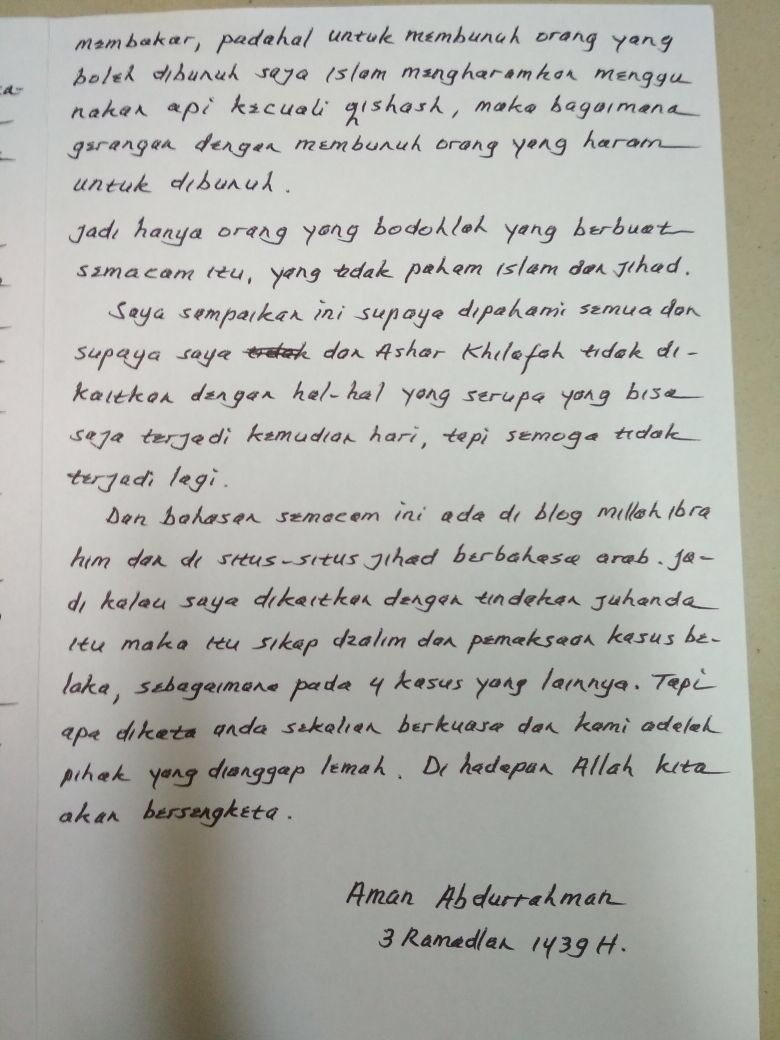 a-
membakar, padahal untuk membunuh orang yang
boleh dibunuh saja Islam mengharamkan menggu
nakan api kecuali qishash, maka bagaimana
gerangan dengan membunuh orang yang haram
untuk dibunuh.
Jadi hanya orang yang bodohlah yang berbuat
semacam itu, yang tidak paham Islam dan Jihad.
Saya sampaikan ini supaya dipahami semua dan
supaya saya tidak dan Ashar Khilafah tidak di-
kaitkan dengan hal-hal yang serupa yang bisa
saja terjadi kemudian hari, tapi semoga tidak
terjadi lagi.
Dan bahasan semacam ini ada di blog millah ibra
him dan di situs-situs jihad berbahasa arab. Ja-
di kalau saya dikaitkan dengan tindakan Juhanda
itu maka itu sikap dzalim dan pemaksaan kasus be-
laka, sebagaimana pada 4 kasus yang lainnya. Tapi
apa dikata anda sekalian berkuasa dan kami adalah
pihak yang dianggap lemah. Di hadapan Allah kita
akan bersengketa.
Aman Abdurrahman
3 Ramadlan 1439 H.